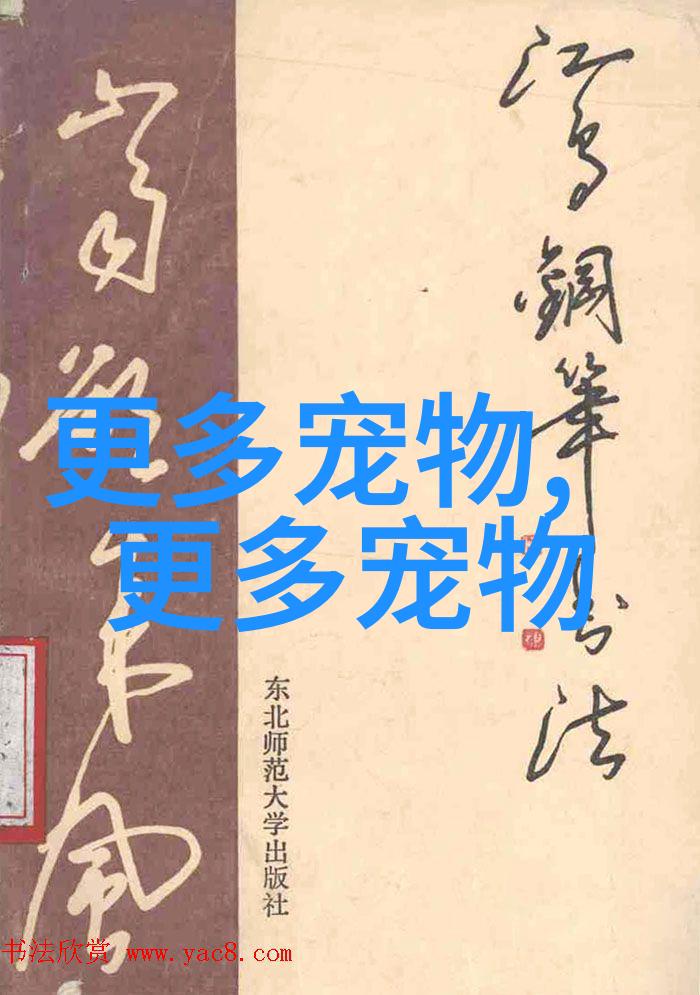 江鸟鋼筆书法
更多宠物,
更多宠物
东北师范大学出版社
书法欣赏 www.yac8.com